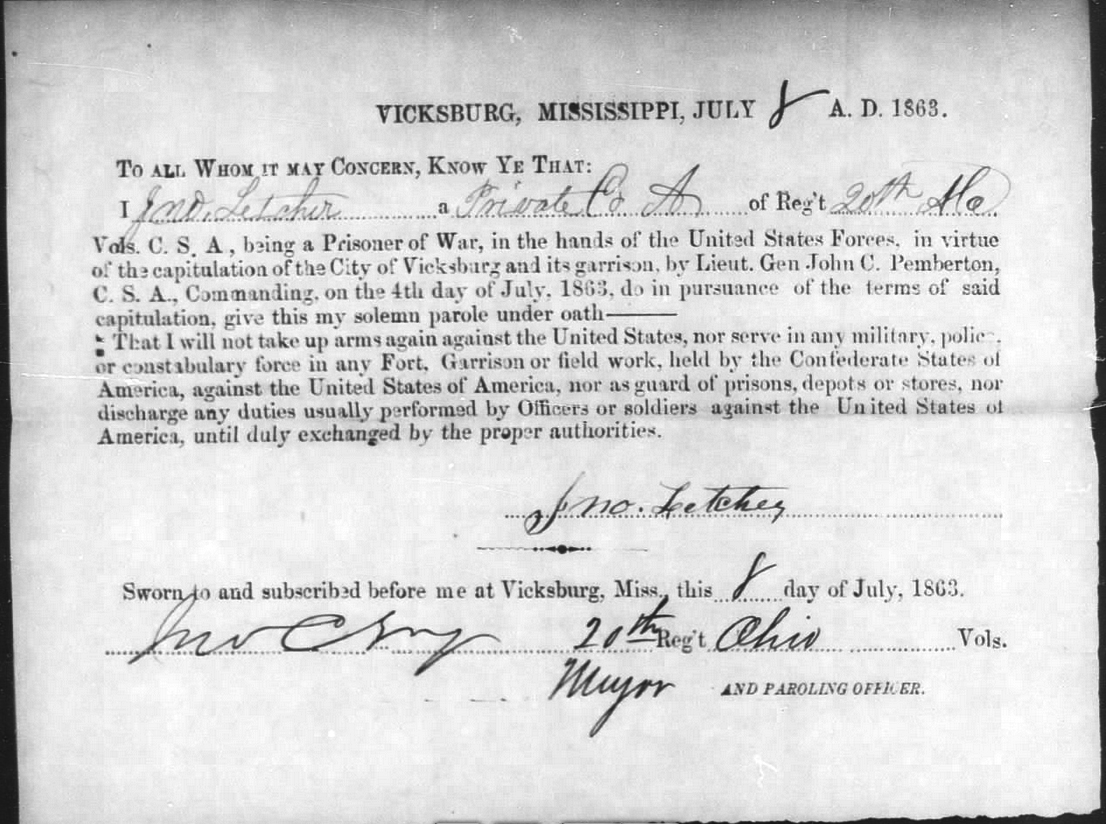 VICKSBURG, MISSISSIPPI, JULY 8 A. D. 1863.
TO ALL WHOM IT MAY CONCERN, KNOW YE THAT:
I Jno. Letcher a Private Co A of Reg't 20th Ala
Vols. C. S. A., being a Prisoner of War, in the hands of the United States Forces, in virtue
of the capitulation of the City of Vicksburg and its garrison, by Lieut. Gen John C. Pemberton,
C. S. A., Commanding, on the 4th day of July, 1863, do in pursuance of the terms of said
capitulation, give this my solemn parole under oath———
That I will not take up arms again against the United States, nor serve in any military, police,
or constabulary force in any Fort, Garrison or field work, held by the Confederate States of
America, against the United States of America, nor as guard of prisons, depots or stores, nor
discharge any duties usually performed by Officers or soldiers against the United States of
America, until duly exchanged by the proper authorities.
Jno. Letcher
Sworn to and subscribed before me at Vicksburg, Miss., this 8 day of July, 1863.
Jno C 20th Reg't Ohio Vols.
Major AND PAROLING OFFICER.